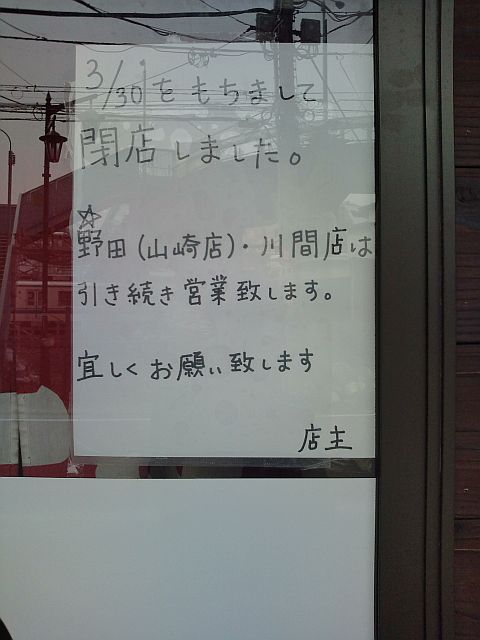 3/30をもちまして
閉店しました。
☆
野田(山崎店)・川間店は
引き続き営業致します。
宜しくお願い致します
店主